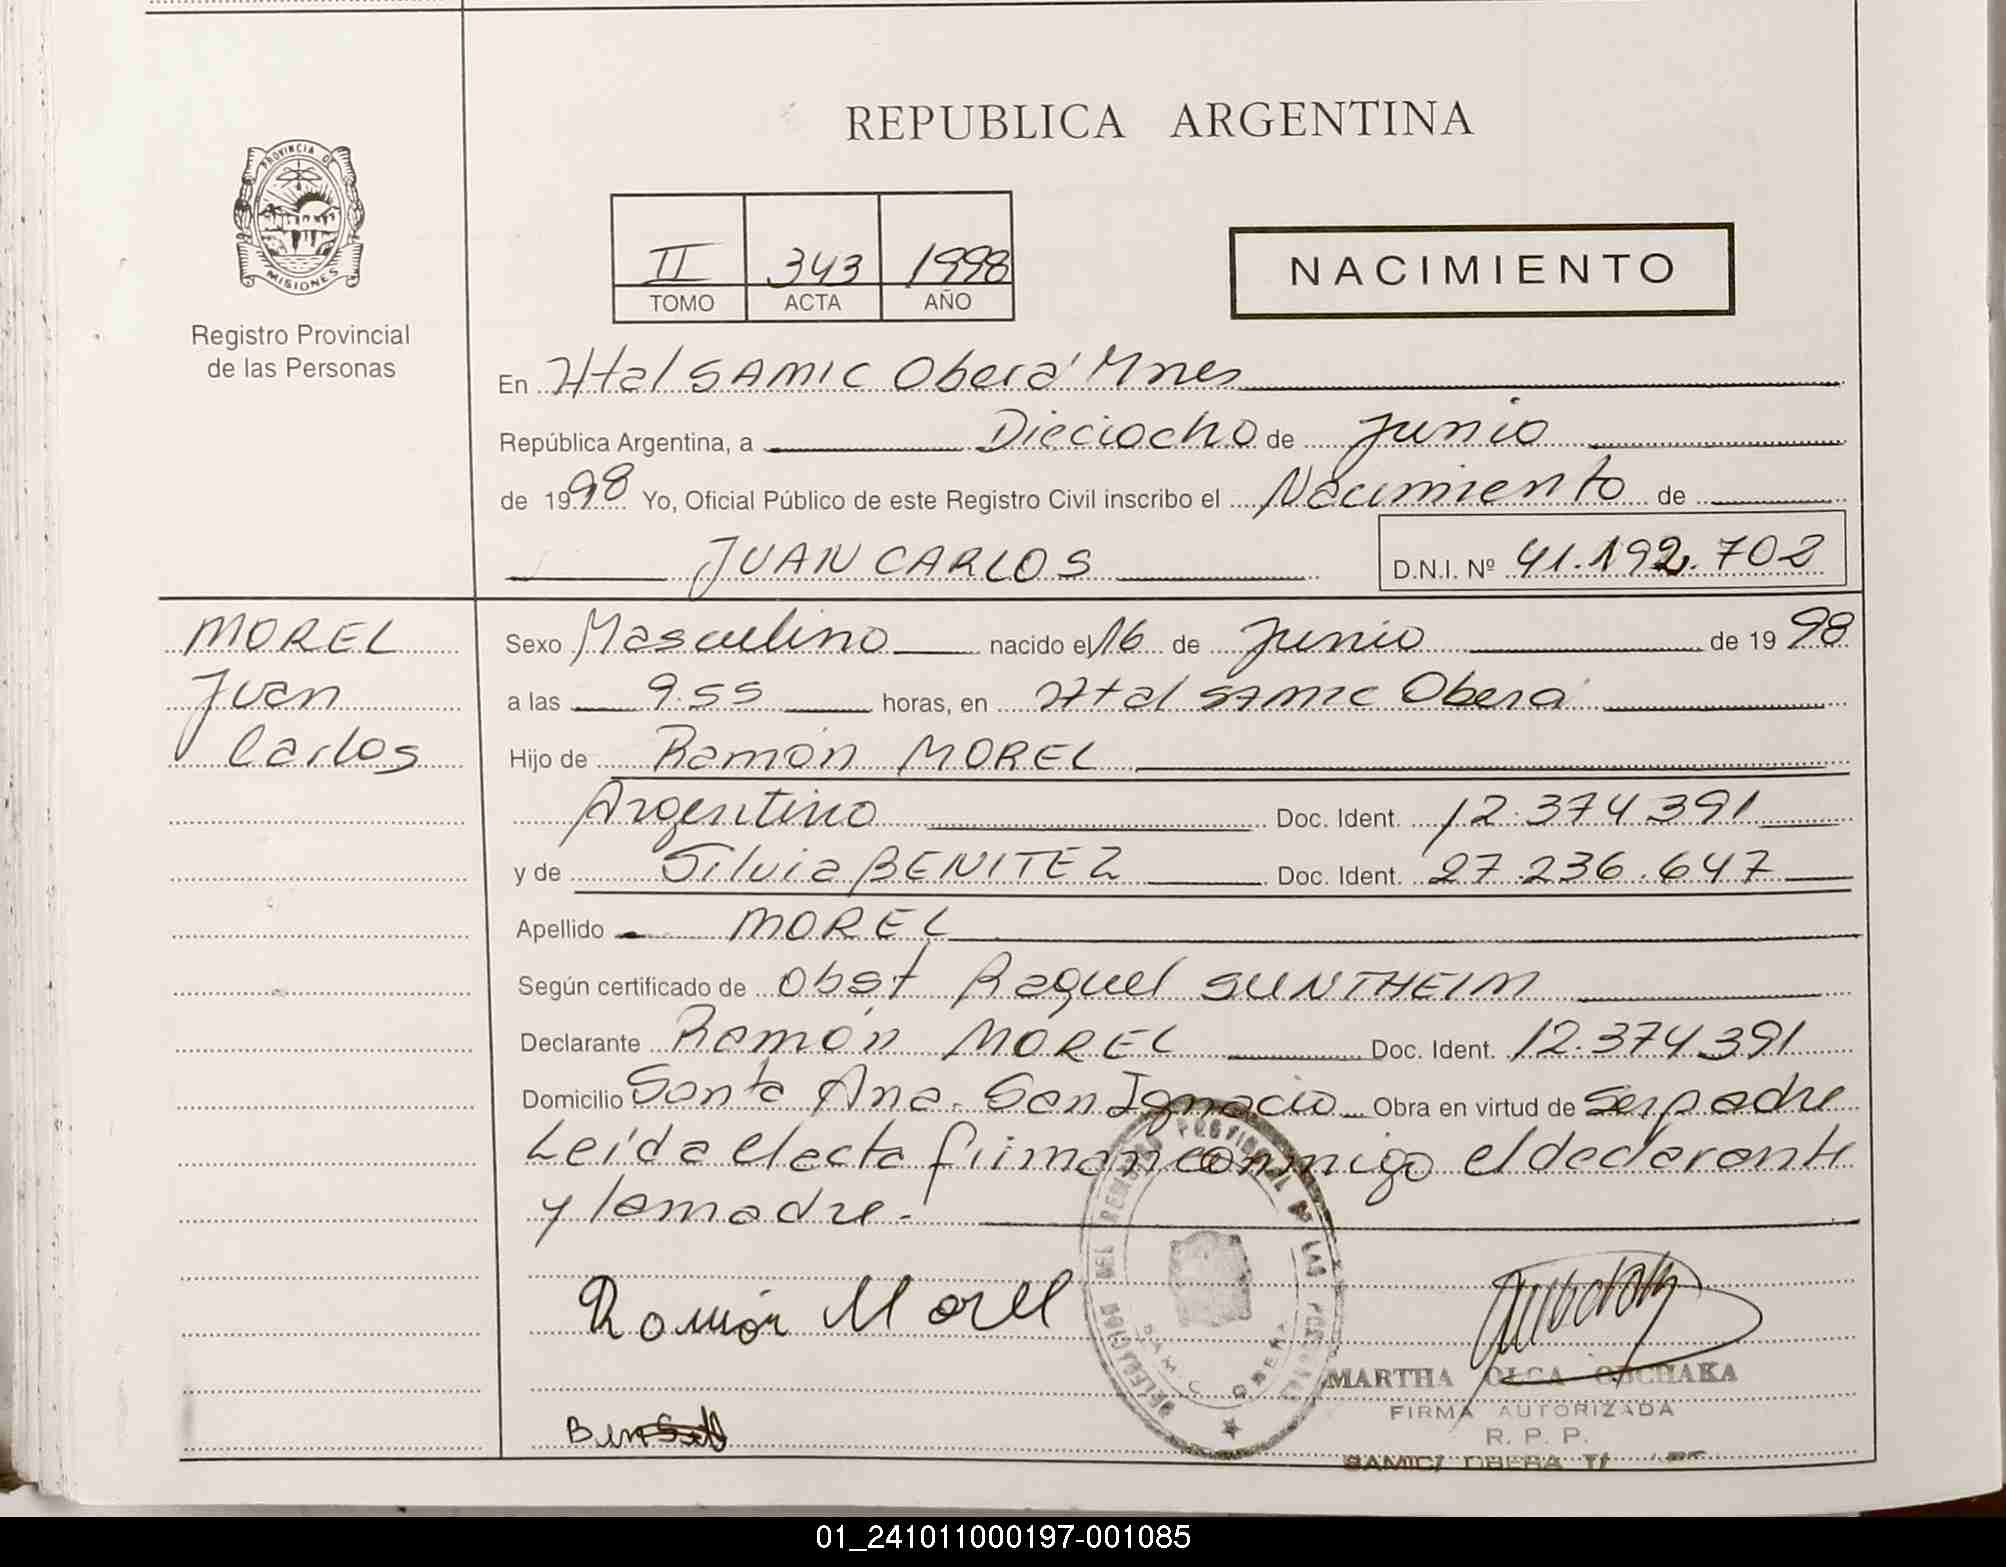 REPUBLICA ARGENTINA
PROVINCIA DE
MISIONES
Registro Provincial
de las Personas
II 343 1998
TOMO ACTA AÑO
NACIMIENTO
En Htal SAMIC Oberá Mnes
República Argentina, a Dieciocho de Junio
de 1998 Yo, Oficial Público de este Registro Civil inscribo el Nacimiento de
JUAN CARLOS D.N.I. Nº 41.192.702
MOREL
Juan
Carlos
Sexo Masculino nacido el 16 de Junio de 19 98
a las 9.55 horas, en Htal SAMIC Oberá
Hijo de Ramón MOREL
Argentino Doc. Ident. 12.374.391
y de Silvia BENITEZ Doc. Ident. 27.236.647
Apellido MOREL
Según certificado de Obst Raquel SUNTHEIM
Declarante Ramón MOREL Doc. Ident. 12.374.391
Domicilio Santa Ana. San Ignacio Obra en virtud de ser padre
Leída el acta firman conmigo el declarante
y la madre.-
Ramón Morel
DELEGACION DEL REGISTRO PROVINCIAL DE LAS PERSONAS
SAMIC OBERA
MARTHA OLGA OBCHAKA
FIRMA AUTORIZADA
R. P. P.
SAMIC/ OBERA
01_241011000197-001085